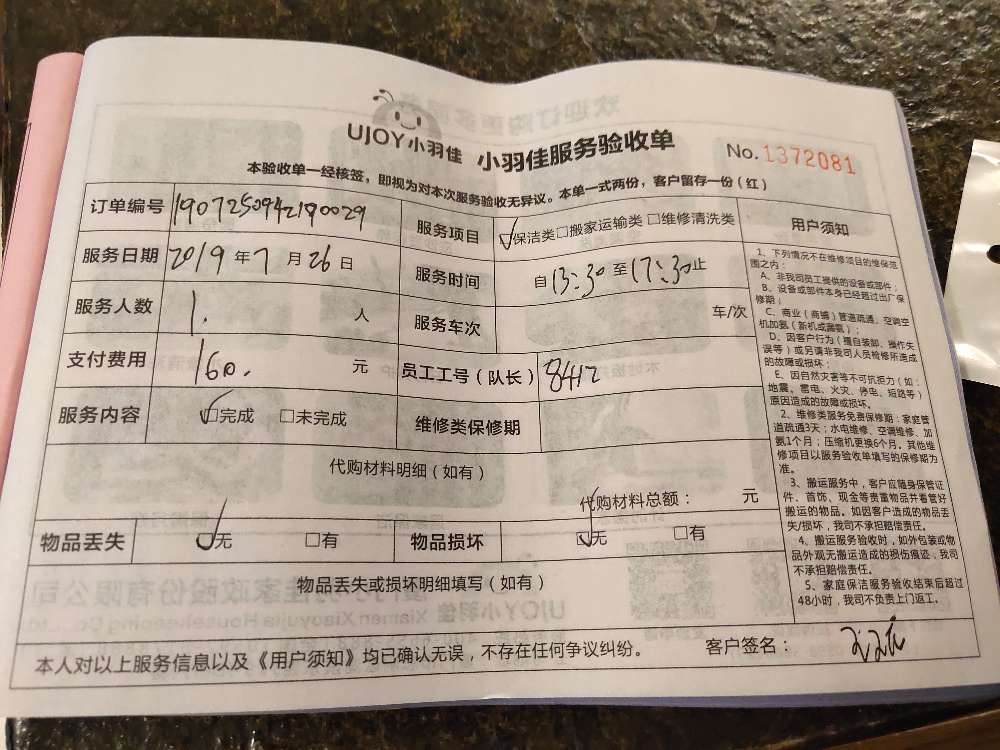 UJOY小羽佳 小羽佳服务验收单 No.1372081
本验收单一经核签，即视为对本次服务验收无异议。本单一式两份，客户留存一份（红）
订单编号 服务项目 保洁类 搬家运输类 维修清洗类
服务日期 2019年7月26日 服务时间 自13:30至17:30止
服务人数 1. 人 服务车次 车/次
支付费用 160. 元 员工工号（队长） 8412
服务内容 完成 未完成 维修类保修期
代购材料明细（如有）
代购材料总额： 元
物品丢失 无 有 物品损坏 无 有
物品丢失或损坏明细填写（如有）
本人对以上服务信息以及《用户须知》均已确认无误，不存在任何争议纠纷。 客户签名：
用户须知
1、下列情况不在维修项目的维保范
围之内：
A、非我司员工提供的设备或部件；
B、设备或部件本身已经超过出厂保
修期；
C、商业（商铺）管道疏通、空调空
机加氨（新机或漏氨）；
D、因客户行为（擅自装卸、操作失
误等）或另请非我司人员检修所造成
的故障或损坏；
E、因自然灾害等不可抗拒力（如：
地震、雷电、火灾、停电、短路等）
原因造成的故障或损坏。
2、维修类服务免费保修期：家庭管
道疏通3天；水电维修、空调维修、加
氨1个月；压缩机更换6个月。其他维
修项目以服务验收单填写的保修期为
准。
3、搬运服务中，客户应随身保管证
件、首饰、现金等贵重物品并看管好
搬运的物品。如因客户造成的物品丢
失/损坏，我司不承担赔偿责任。
4、搬运服务验收时，如外包装或物
品外观无搬运造成的损伤痕迹，我司
不承担赔偿责任。
5、家庭保洁服务验收结束后超过
48小时，我司不负责上门返工。